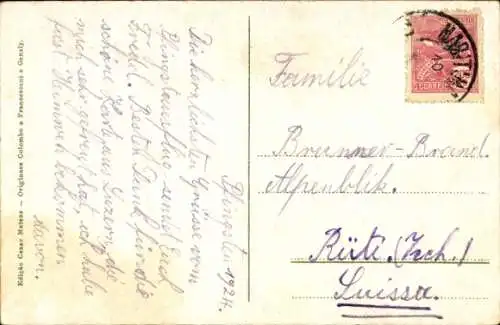 Pfingsten 1924.
Die herzlichsten Grüsse vom
Pfingstausflug sendet Euch
Fredel. Besten Dank für die
schöne Karte aus Luzern, die
mich sehr gefreut hat, ich habe
fast Heimweh bekommen
Edição Cesar Matera — Originaes Colombo e Francesconi e Genaly.
MARITIM
CORREIO
Familie
Brunner-Brand
Alpenblik.
Rüti. (Zch.)
Suissa.